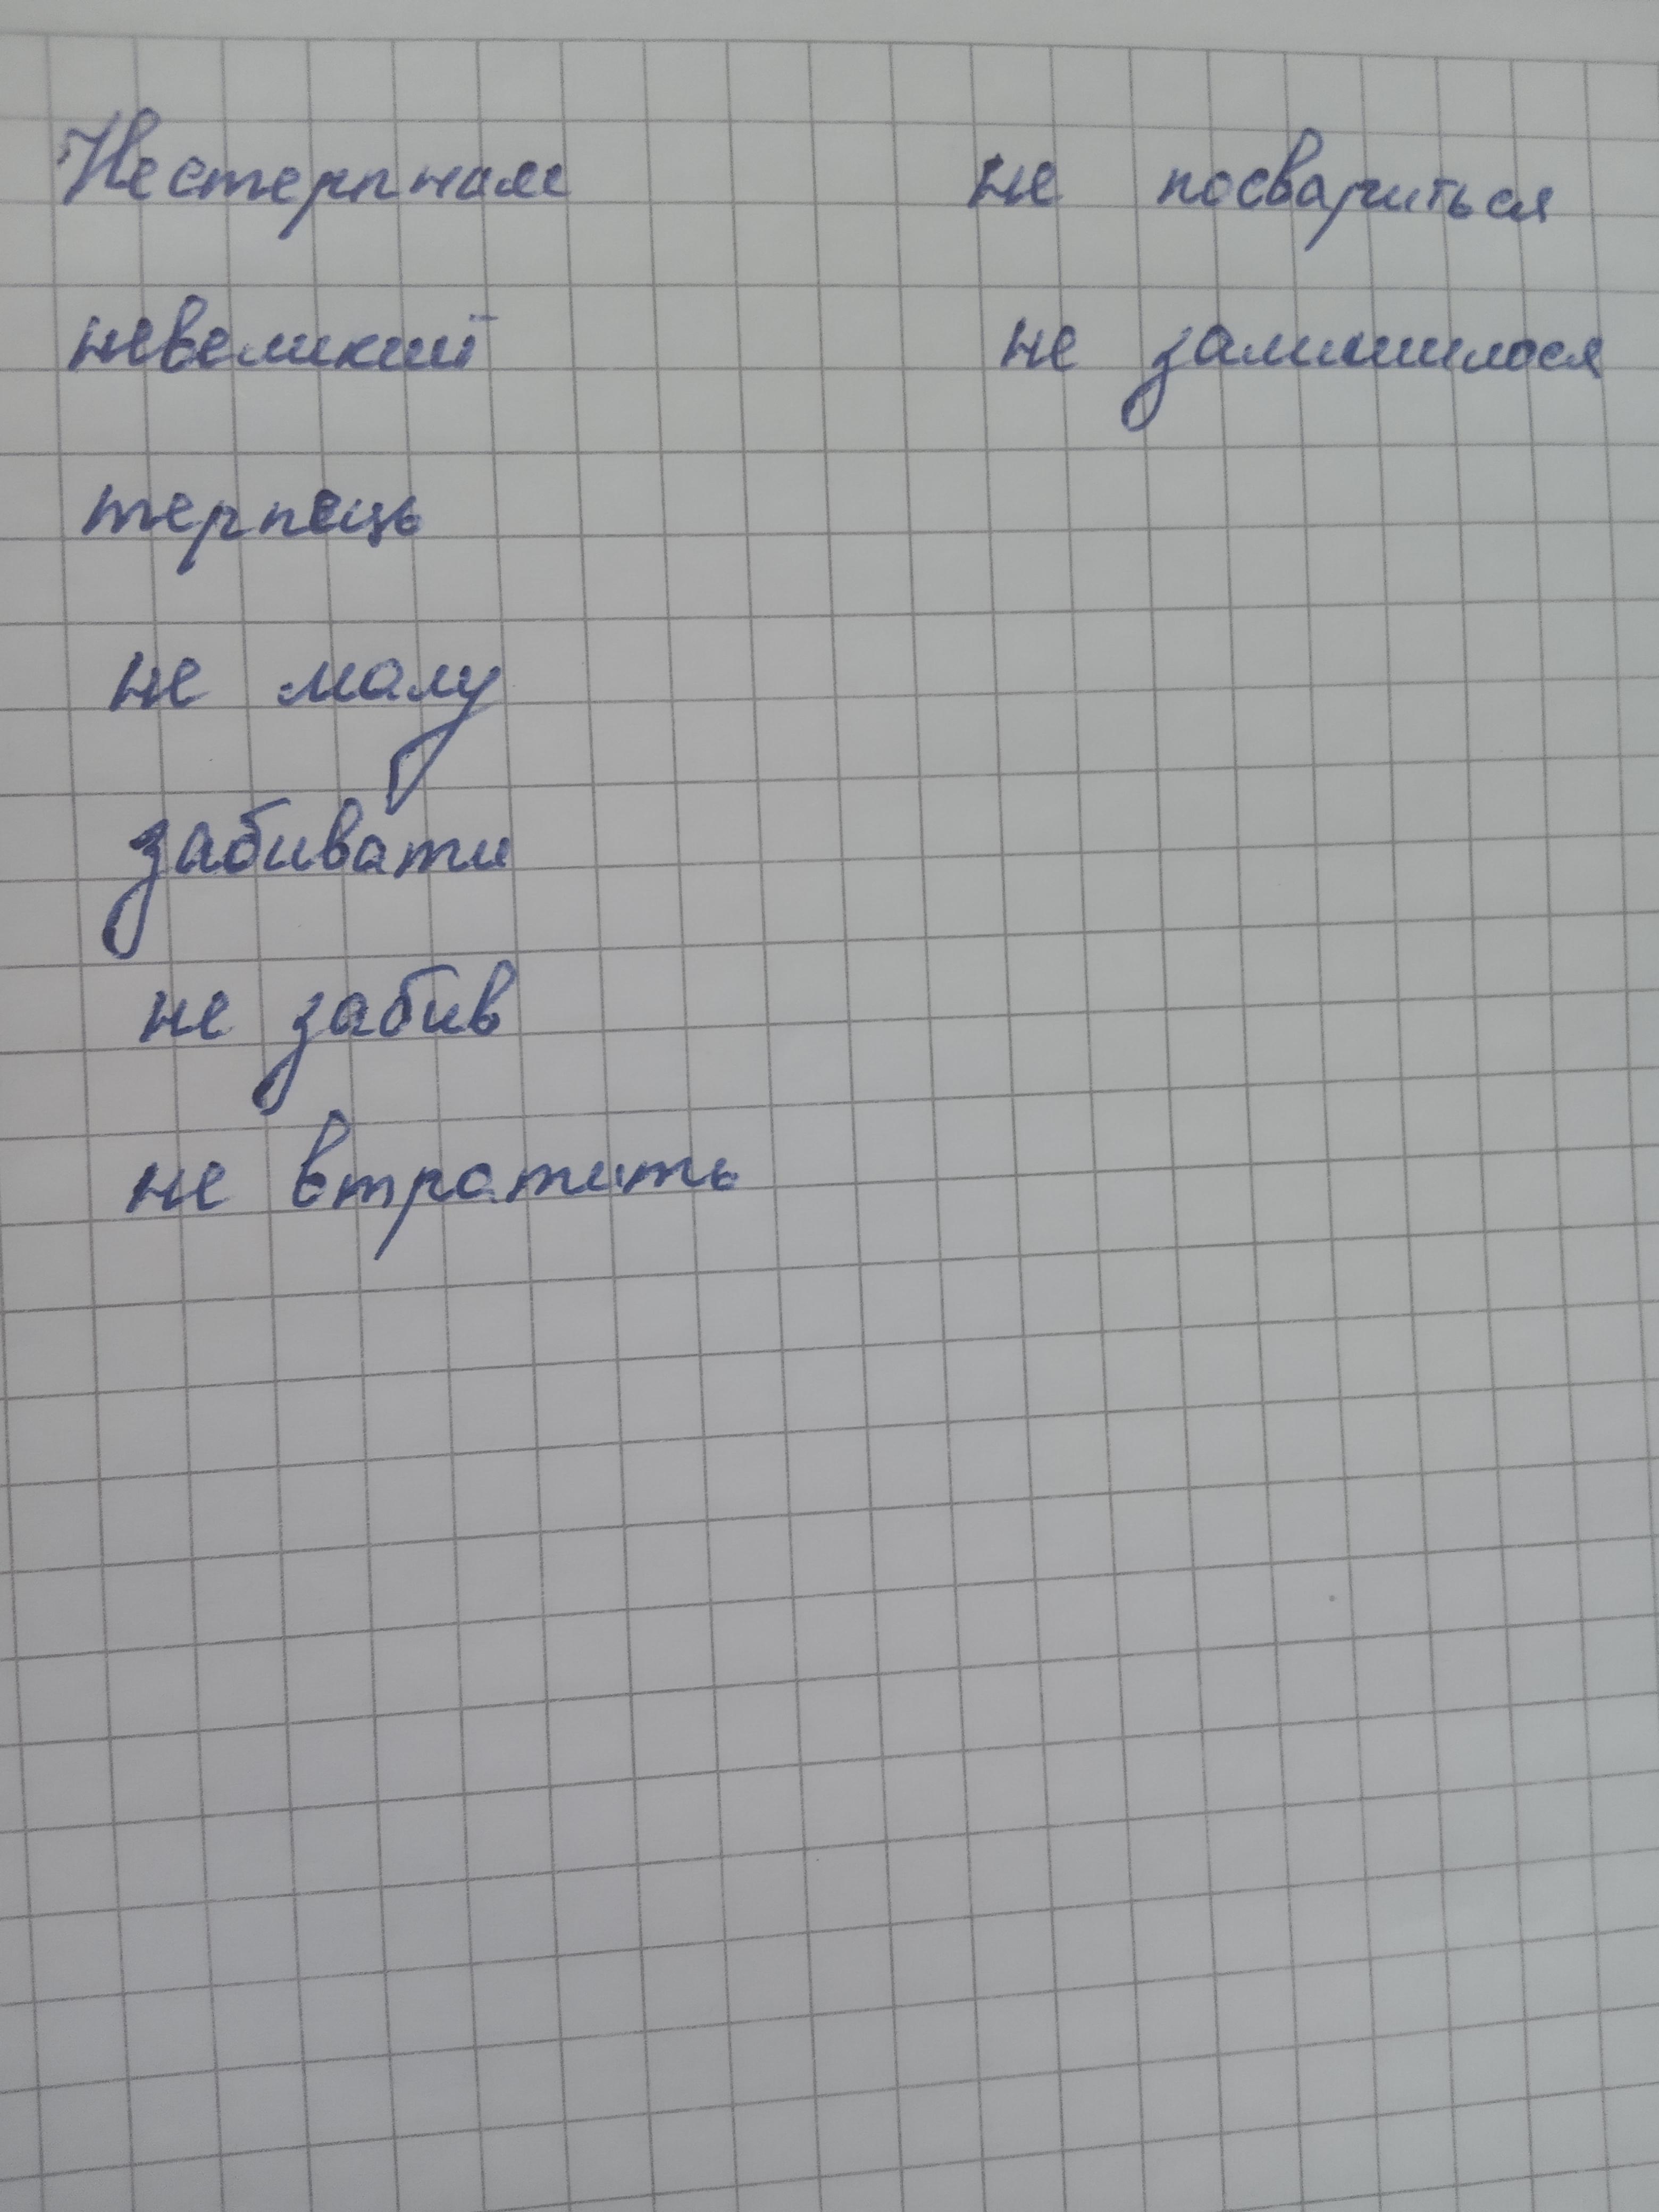 Нестерпнале
невеликий
терпець
не малу
забивати
не забив
не втратить
не посвариться
не залишилося